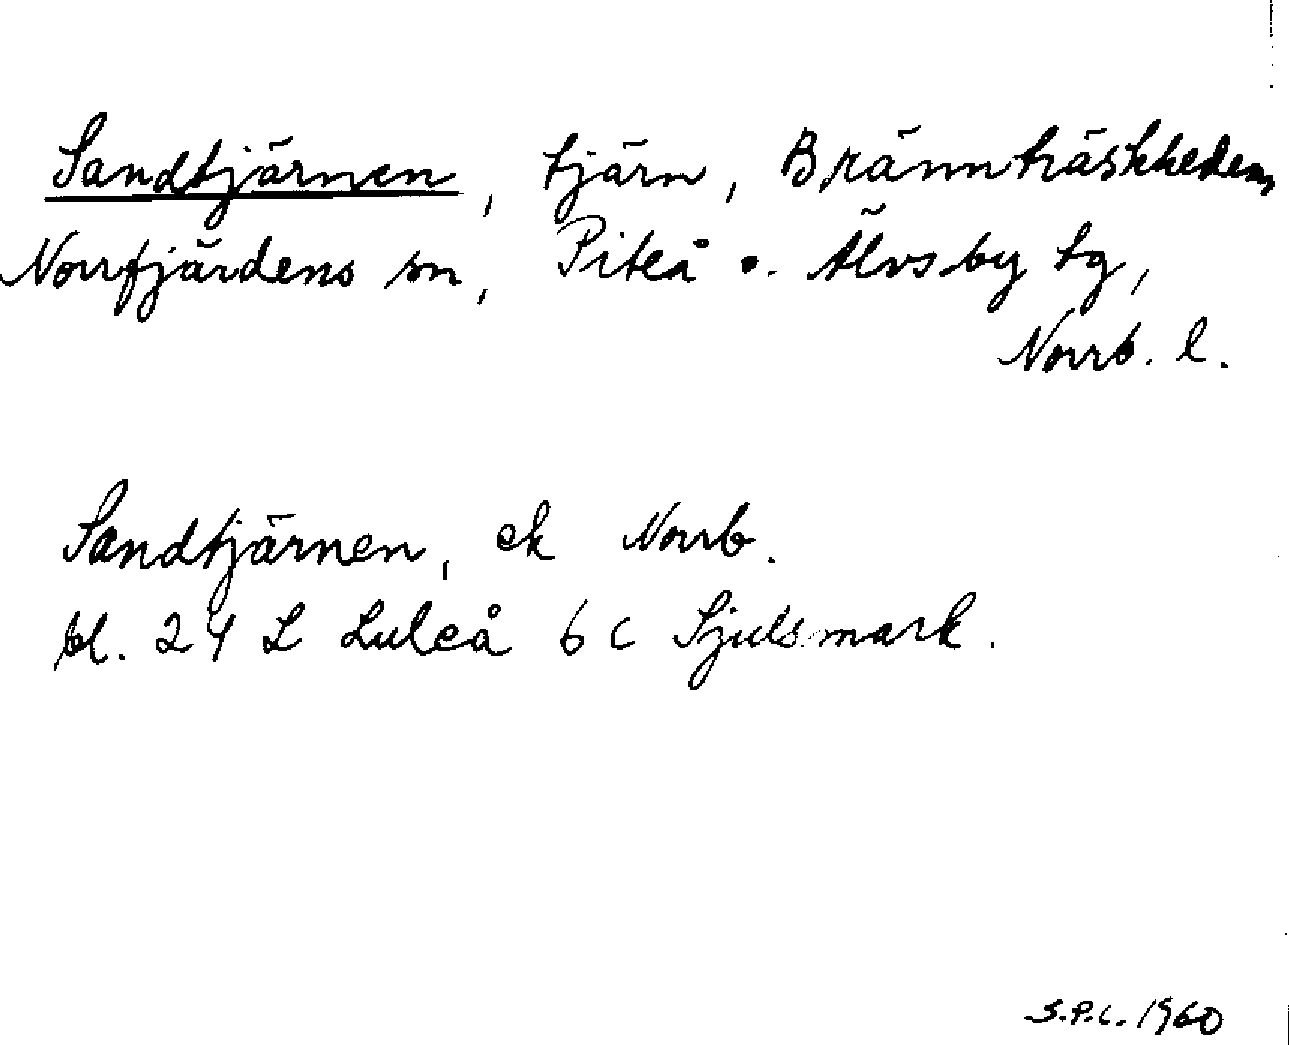 Sandtjärnen, tjärn, Brännträskheden,
Norrfjärdens sn, Piteå o. Älvsby tg,
Norrb. l.
Sandtjärnen, ek Norrb.
bl. 24 L Luleå 6 c Sjulsmark.
S.P.C. 1960